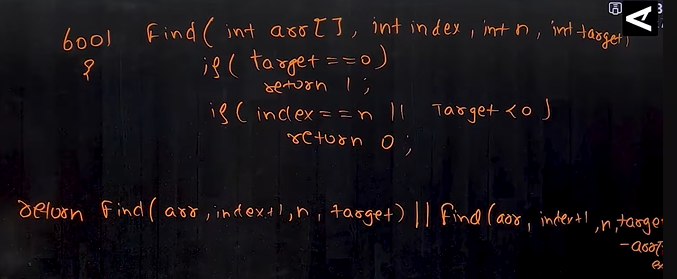 bool find( int arr[], int index, int n, int target,
{ if( target ==0)
return 1;
if( index==n || Target <0)
return 0;
return find( arr, index+1, n, target) || find(arr, index+1, n, targe
-arr[